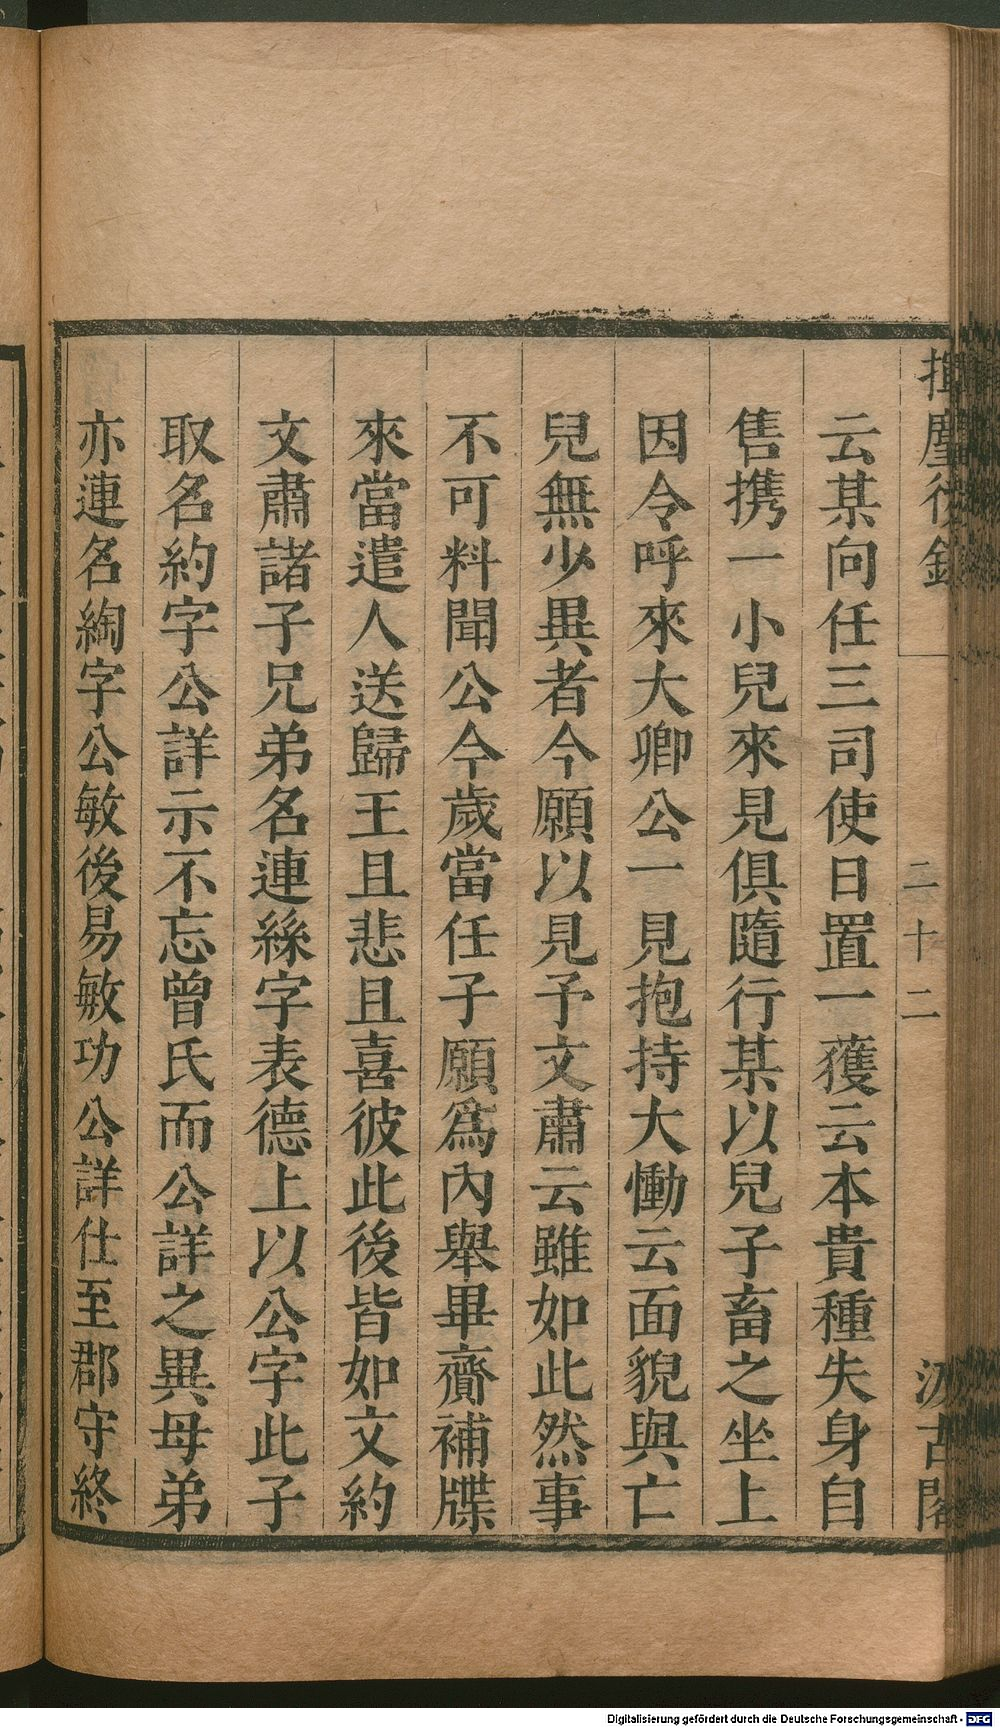 揮麈後錄
二十二
汲古閣
云某向任三司使日置一獲云本貴種失身自
售携一小兒來見俱隨行某以兒子畜之坐上
因令呼來大卿公一見抱持大慟云面貌與亡
兒無少異者今願以見予文肅云雖如此然事
不可料聞公今歲當任子願爲內舉畢齎補牒
來當遣人送歸王且悲且喜彼此後皆如文約
文肅諸子兄弟名連絲字表德上以公字此子
取名約字公詳示不忘曾氏而公詳之異母弟
亦連名綯字公敏後易敏功公詳仕至郡守終
Digitalisierung gefördert durch die Deutsche Forschungsgemeinschaft - DFG